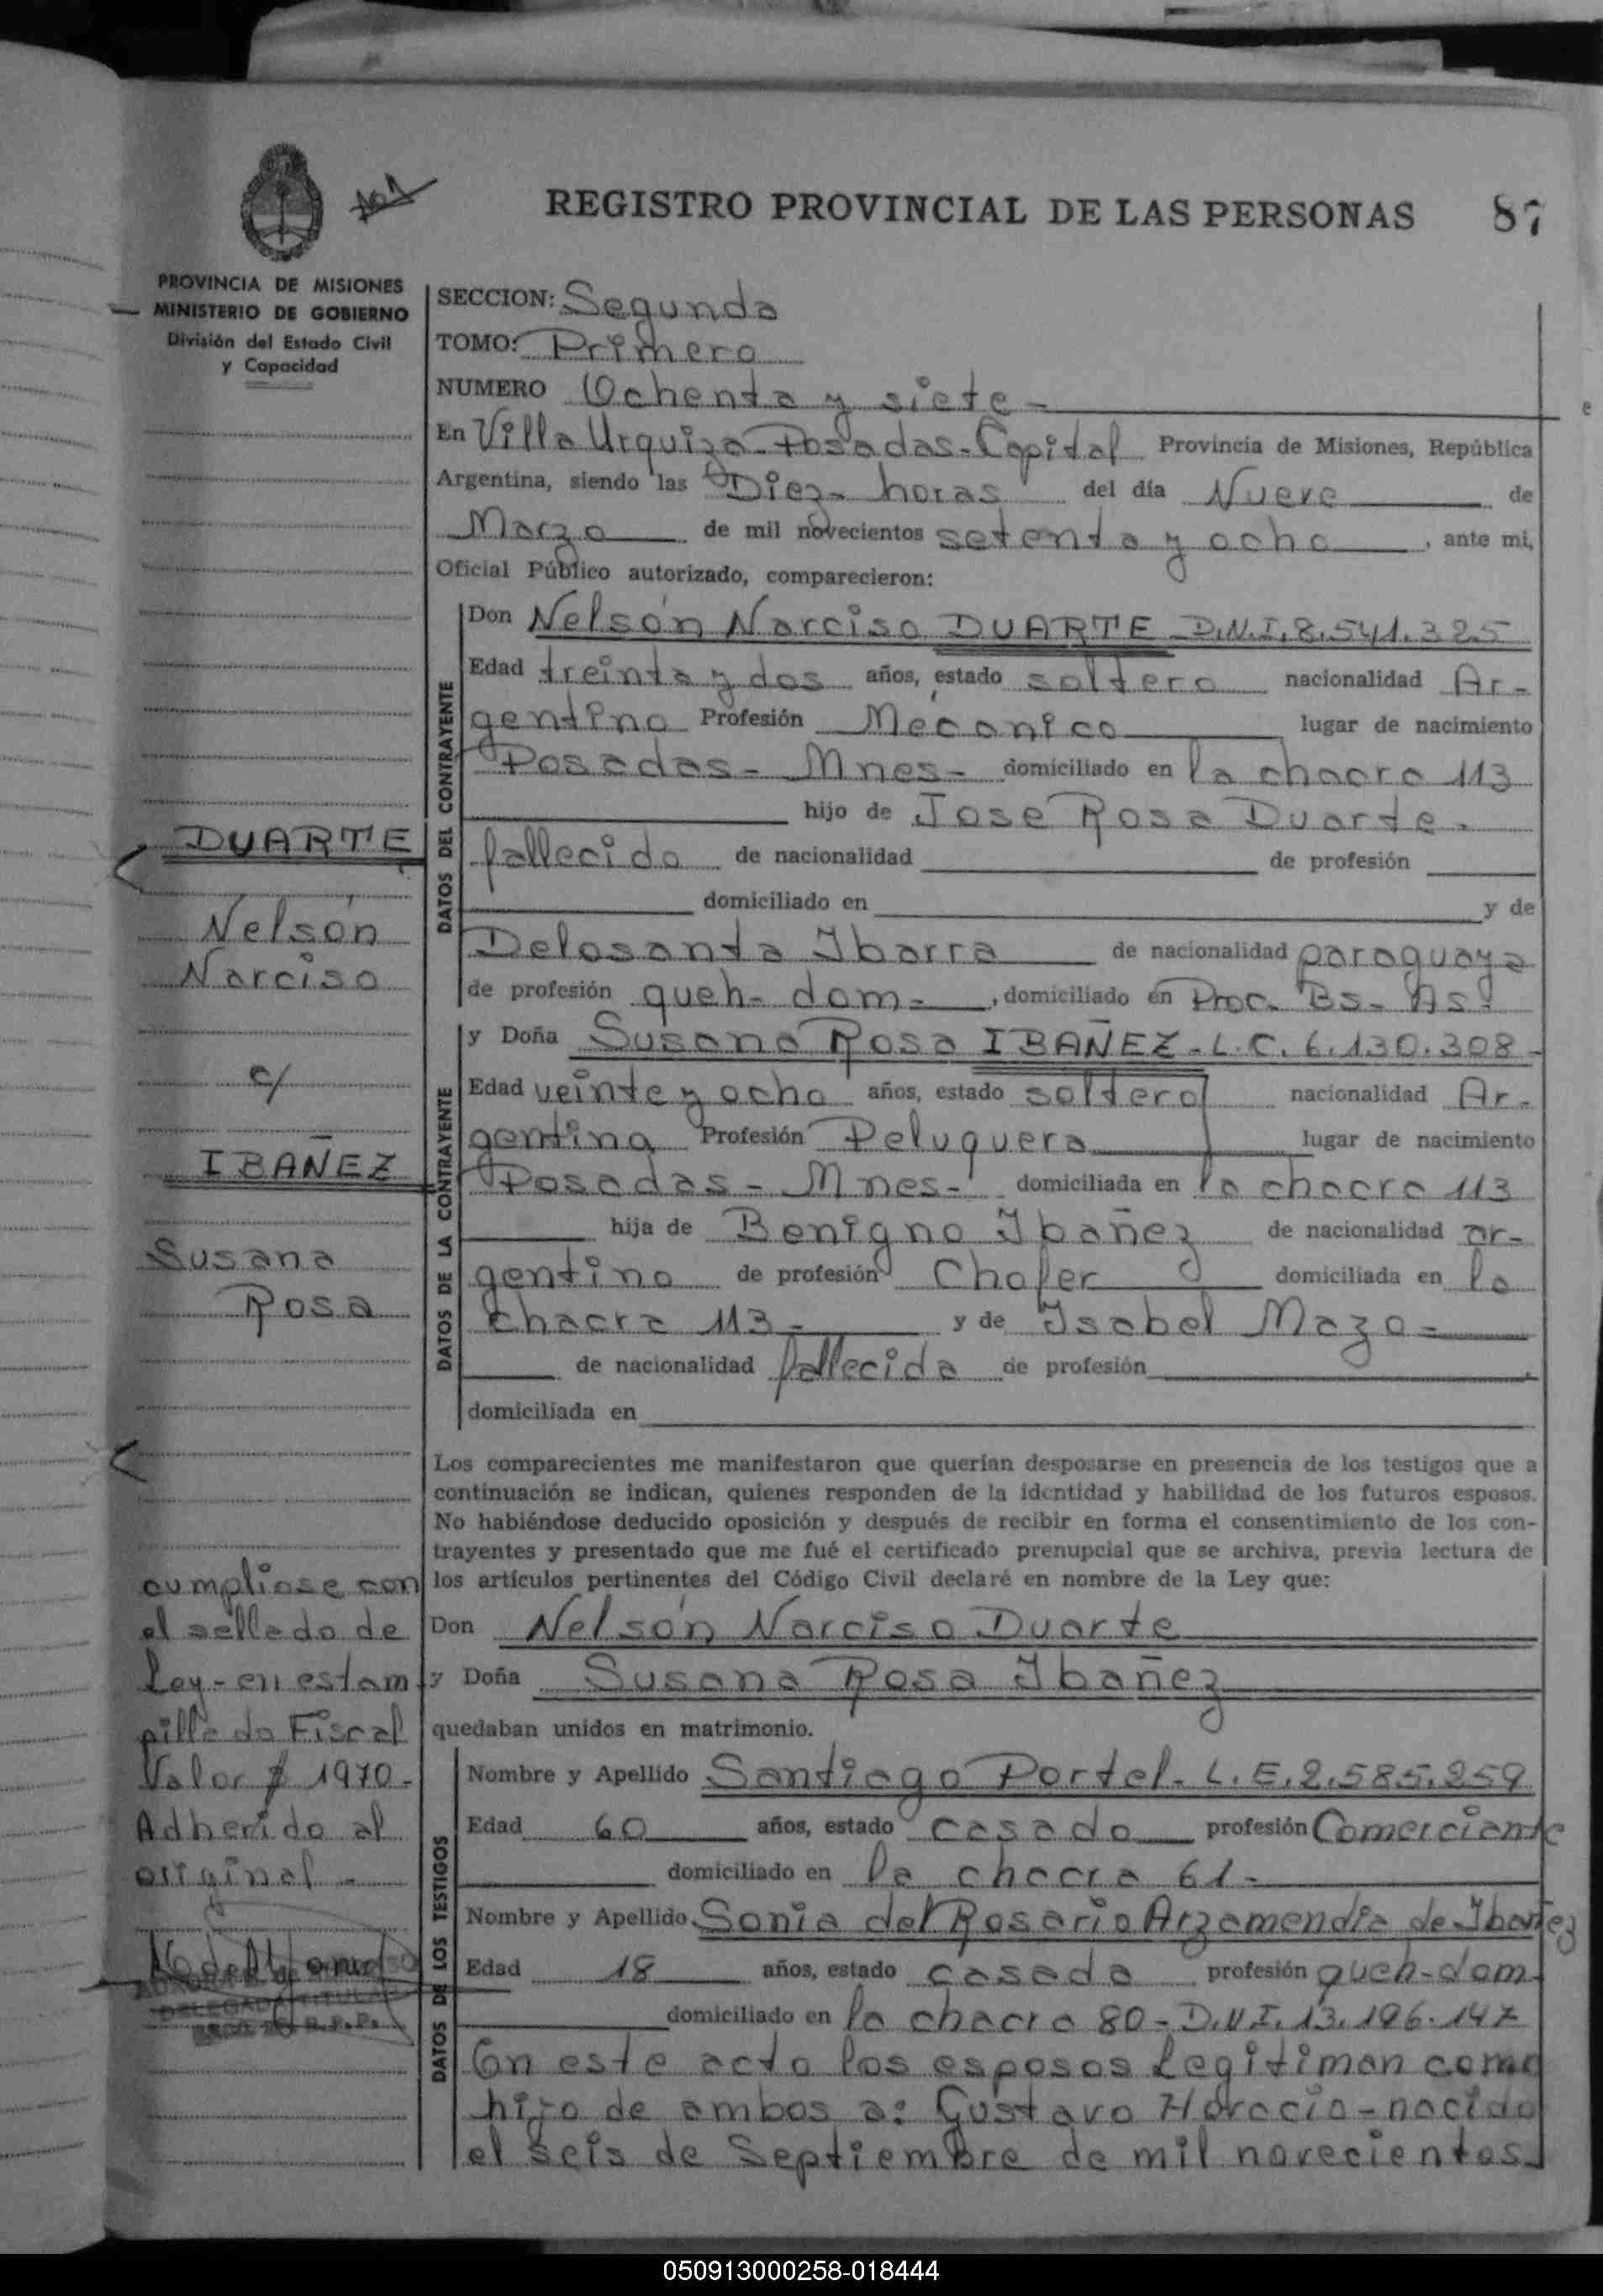 REGISTRO PROVINCIAL DE LAS PERSONAS 87
PROVINCIA DE MISIONES
MINISTERIO DE GOBIERNO
División del Estado Civil
y Capacidad
SECCION: Segunda
TOMO: Primero
NUMERO Ochenta y siete -
En Villa Urquiza - Posadas - Capital Provincia de Misiones, República
Argentina, siendo las Diez - horas del día Nueve de
Marzo de mil novecientos setenta y ocho, ante mi,
Oficial Público autorizado, comparecieron:
DATOS DEL CONTRAYENTE
Don Nelsón Narciso DUARTE D.N.I. 8.541.325
Edad treinta y dos años, estado soltero nacionalidad Ar-
gentino Profesión Mecanico lugar de nacimiento
Posadas - Mnes - domiciliado en la chacra 113
hijo de Jose Rosa Duarte -
fallecido de nacionalidad de profesión
domiciliado en y de
Delosanta Ibarra de nacionalidad paraguaya
de profesión queh - dom -, domiciliado en Proc. Bs - As.
DATOS DE LA CONTRAYENTE
y Doña Susana Rosa IBAÑEZ - L.C. 6.130.308 -
Edad veinte y ocho años, estado soltera nacionalidad Ar-
gentina Profesión Peluquera lugar de nacimiento
Posadas - Mnes - domiciliada en la chacra 113
hija de Benigno Ibañez de nacionalidad ar-
gentino de profesión Chofer domiciliada en la
chacra 113 - y de Isabel Mazo -
de nacionalidad fallecida de profesión
domiciliada en
Los comparecientes me manifestaron que querían desposarse en presencia de los testigos que a
continuación se indican, quienes responden de la identidad y habilidad de los futuros esposos.
No habiéndose deducido oposición y después de recibir en forma el consentimiento de los con-
trayentes y presentado que me fué el certificado prenupcial que se archiva, previa lectura de
los artículos pertinentes del Código Civil declaré en nombre de la Ley que:
Don Nelsón Narciso Duarte
y Doña Susana Rosa Ibañez
quedaban unidos en matrimonio.
DATOS DE LOS TESTIGOS
Nombre y Apellido Santiago Portel - L.E. 2.585.259
Edad 60 años, estado casado profesión Comerciante
domiciliado en la chacra 61 -
Nombre y Apellido Sonia del Rosario Arzamendia de Ibañez
Edad 18 años, estado casada profesión queh - dom
domiciliado en la chacra 80 - D.N.I. 13.196.147
En este acto los esposos legitiman como
hijo de ambos a: Gustavo Horacio - nacido
el seis de Septiembre de mil novecientos
DUARTE
Nelsón
Narciso
c/
IBAÑEZ
Susana
Rosa
cumpliose con
el sellado de
Ley - en estam
pillado Fiscal
Valor $ 1970 -
Adherido al
original -
DELEGADA TITULAR
050913000258-018444